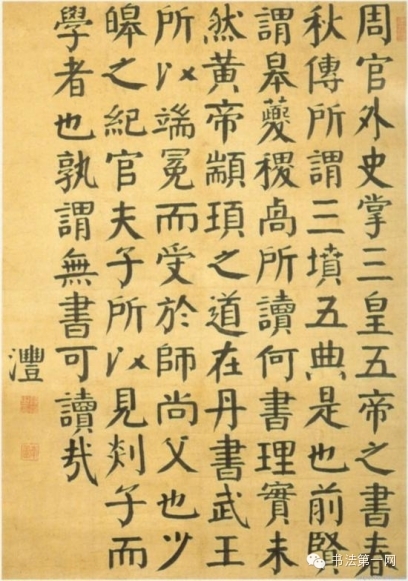 周官外史掌三皇五帝之書春
秋傳所謂三墳五典是也前賢
謂皋夔稷卨所讀何書理實未
然黃帝顓頊之道在丹書武王
所以端冕而受於師尚父也少
皞之紀官夫子所以見剡子而
學者也孰謂無書可讀哉
灃
书法第一网